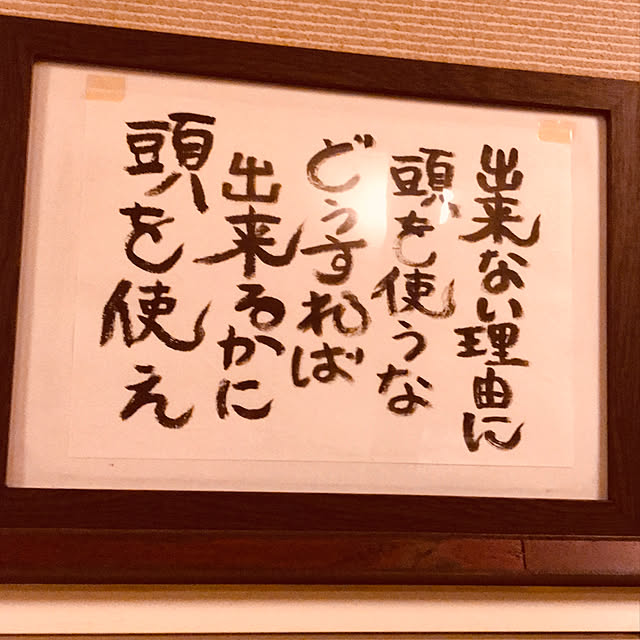 出来ない理由に
頭を使うな
どうすれば
出来るかに
頭を使え